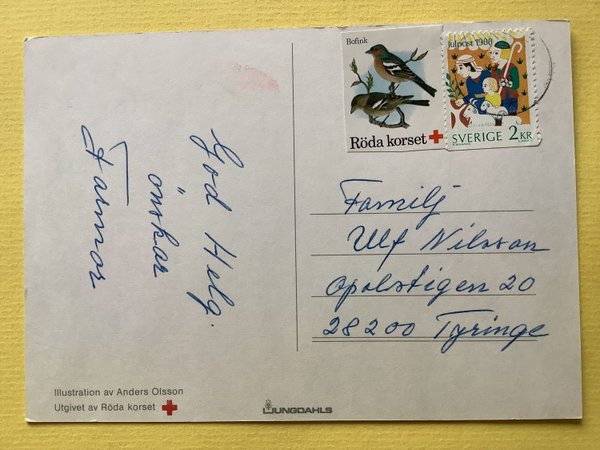 God Helg.
önskar
Farmor
Bofink
Röda korset
Julpost 1988
SVERIGE 2 KR
Familj
Ulf Nilsson
Opalstigen 20
28200 Tyringe
Illustration av Anders Olsson
Utgivet av Röda korset
LJUNGDAHLS